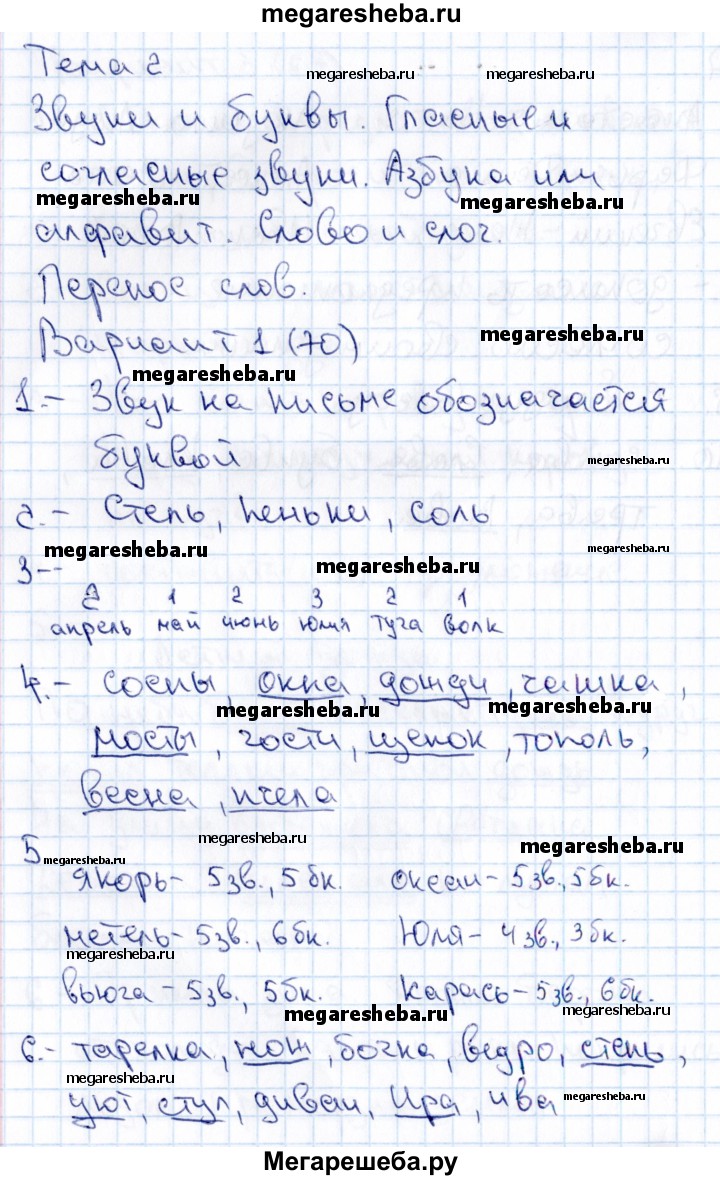 megaresheba.ru
Тема 2
megaresheba.ru
Звуки и буквы. Гласные и
согласные звуки. Азбука или
megaresheba.ru
megaresheba.ru
алфавит. Слово и слог.
Перенос слов.
Вариант 1 (70)
megaresheba.ru
megaresheba.ru
1.- Звук на письме обозначается
буквой
megaresheba.ru
2.- Степь, пеньки, соль
megaresheba.ru
megaresheba.ru
3--
megaresheba.ru
2 1 2 3 2 1
апрель май июнь юлия туча волк
4.- Сосны, окна, дожди, чашка,
megaresheba.ru
megaresheba.ru
мосты, гости, щенок, тополь,
весна, пчела
megaresheba.ru
megaresheba.ru
5
megaresheba.ru
якорь- 5зв., 5бк. океан- 5зв., 5бк.
метель- 5зв., 6бк. Юля- 4зв., 3бк.
megaresheba.ru
megaresheba.ru
вьюга - 5зв., 5бк. карась- 5зв., 6бк.
megaresheba.ru
megaresheba.ru
6.- тарелка, нож, бочка, ведро, степь,
megaresheba.ru
megaresheba.ru
уют, стул, диван, Ира, ива
Мегарешеба.ру